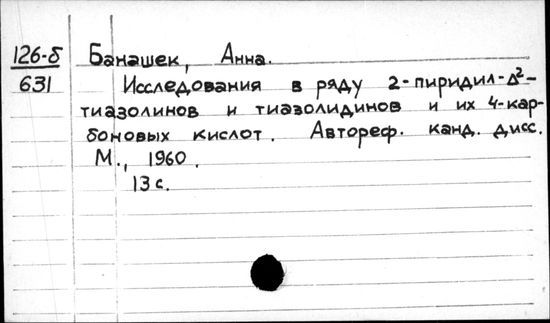 126-б
631
Банашек, Анна.
Исследования в ряду 2-пиридил-Δ²-
тиазолинов и тиазолидинов и их 4-кар-
боновых кислот. Автореф. канд. дисс.
М., 1960.
13 с.